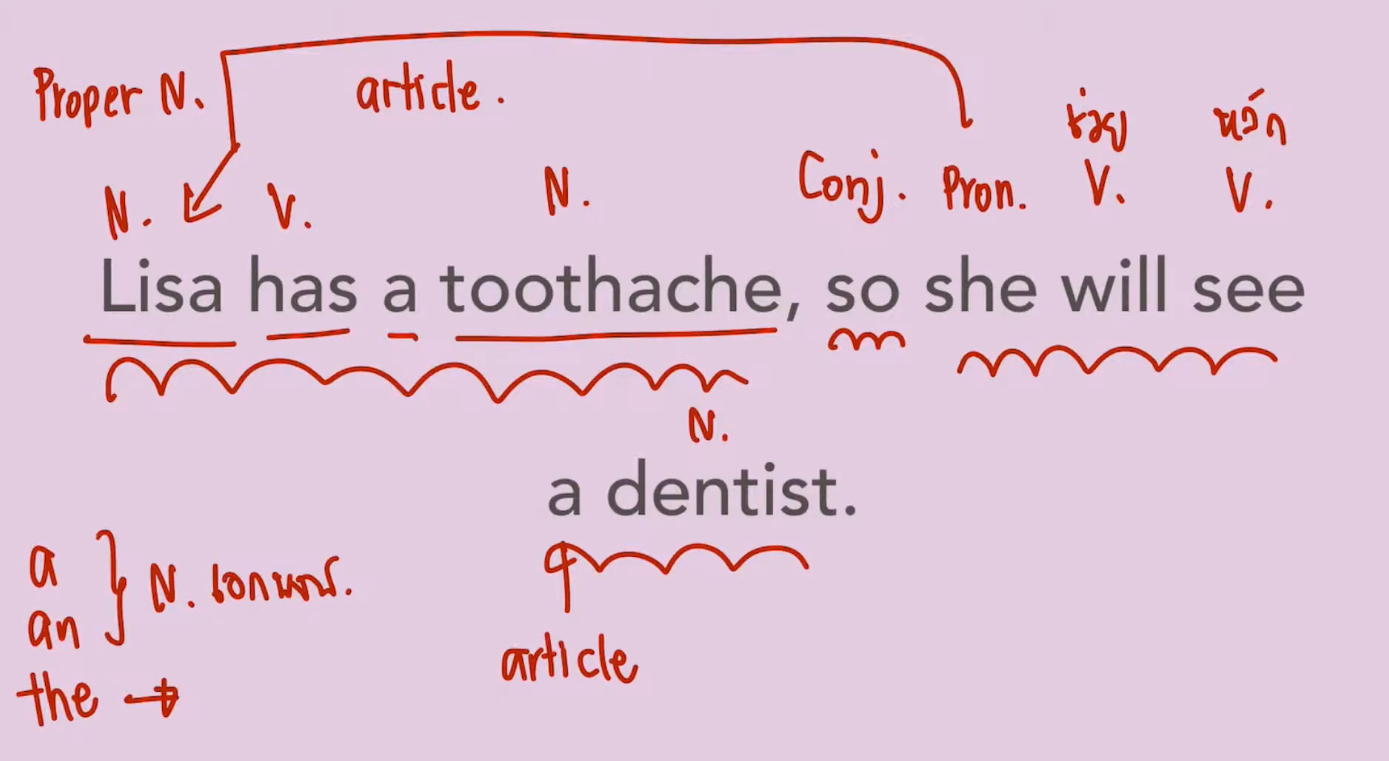 Proper N. article.
ช่วย หลัก
N. V. N. Conj. Pron. V. V.
Lisa has a toothache, so she will see
N.
a dentist.
a
an } N. เอกพจน์.
the →
article